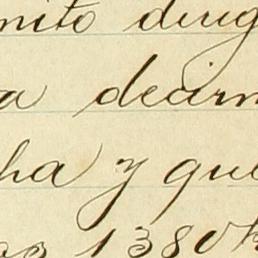 mito dirig
a decirm
ha y que
os 1380